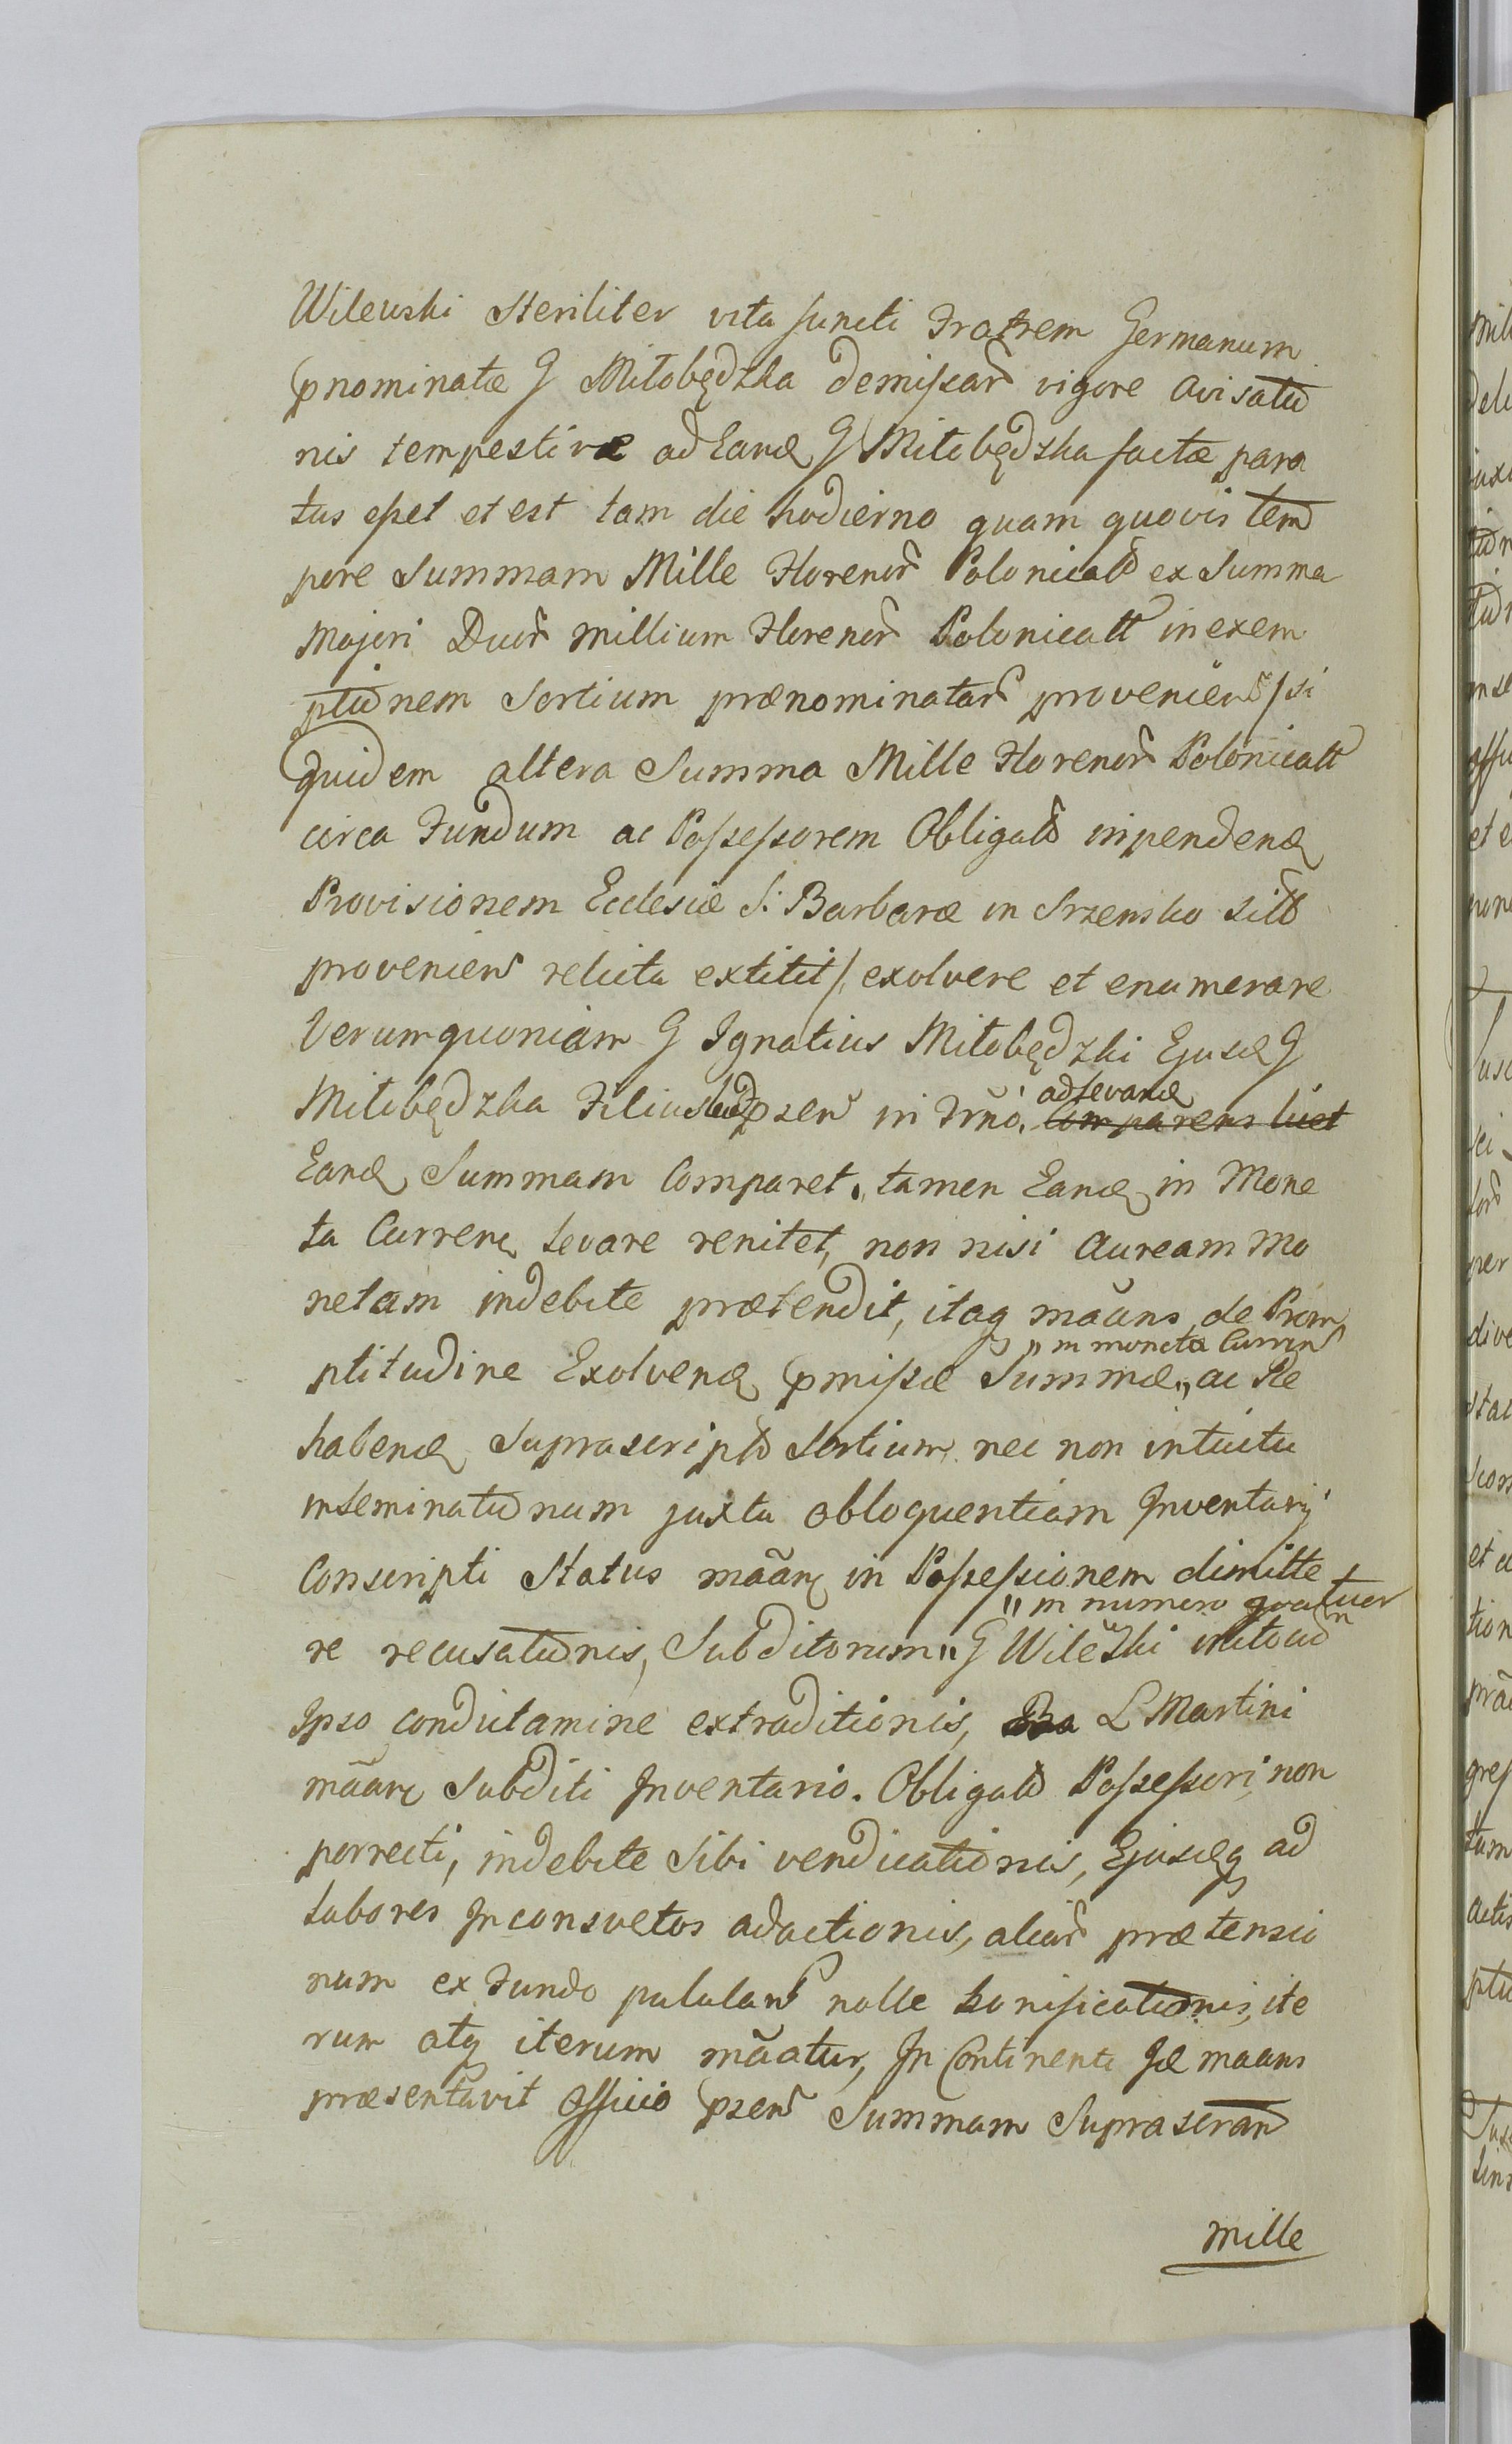 Wilewski Steriliter vita functi Fratrem Germanum
pnominatæ G Miłobędzka demissar vigore avisatio
nis tempestivæ ad Eand G Miłobędzka factæ para
tus esset et est tam die hodierno quam quovis tem
pore Summam Mille Florenor Polonical ex Summa
Majori Duor millium Florenor Polonicall in exem
ptionem Sortium prænominatar provenien /si
quidem altera Summa Mille Florenor Polonicall
circa Fundum ac Possessorem Obligat inpendend
Provisionem Ecclesiæ S: Barbaræ in Srzensko sit
provenien relicta extitit/ exolvere et enumerare
Verum quoniam G Ignatius Miłobędzki Ejusd G
Miłobędzka Filius psen in Tmno. ad levand
Eand Summam Comparet, tamen Eand in Mone
ta Curren levare renitet, non nisi auream mo
netam indebite prætendit, itaq mãans de Prom
ptitudine Exolvend pmissæ Summæ „ in moneta Curren „ ac Re
habend Suprascript Sortium nec non intuitu
inseminationum juxta obloquentiam Inventarij
Conscripti Status mãan in Possessionem dimitte
re recusationis, Subditorum „ in numero quatuor „ G Wilewski
Ipso condictamine extraditionis, L Martini
mãan Subditi Inventario. Obligat Possessori, non
porrecti, indebite Sibi vendicationis, Ejusdq ad
Labores Inconsvetos adactionis, aliar prætensio
num ex Fundo pululan nolle bonificationis, ite
rum atq iterum mãatur, In Continenti Id maans
præsentavit Officio psen Summam Suprascran
mille